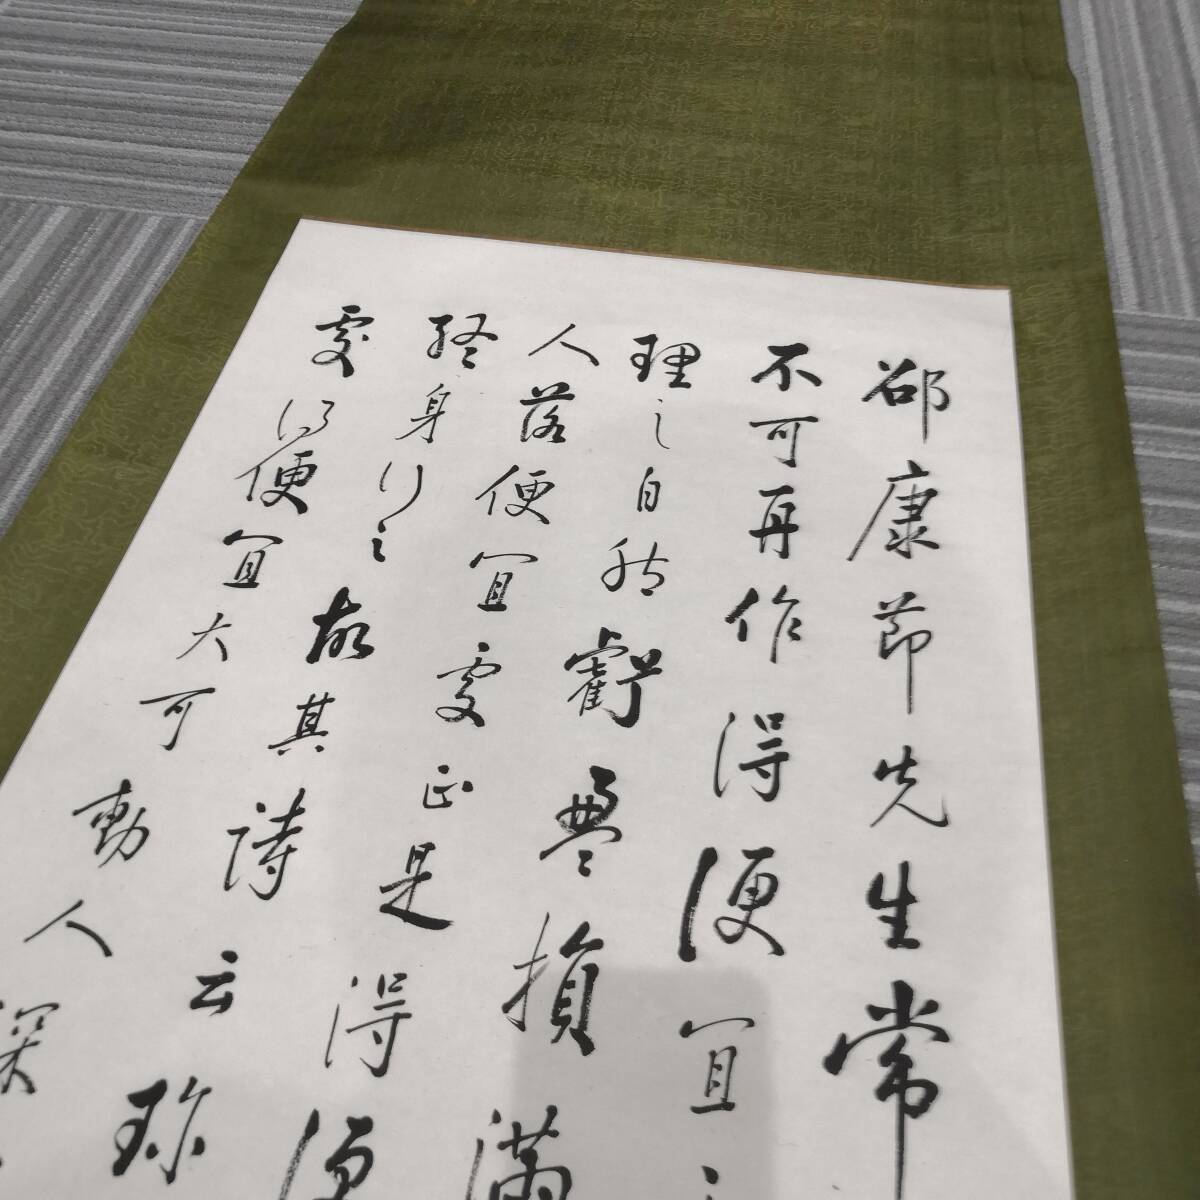 邵康節先生常
不可再作得便宜之
理之自然虧盈損滿
人落便宜處正是得便
終身行之故其詩云珎
處得便宜大可動人深